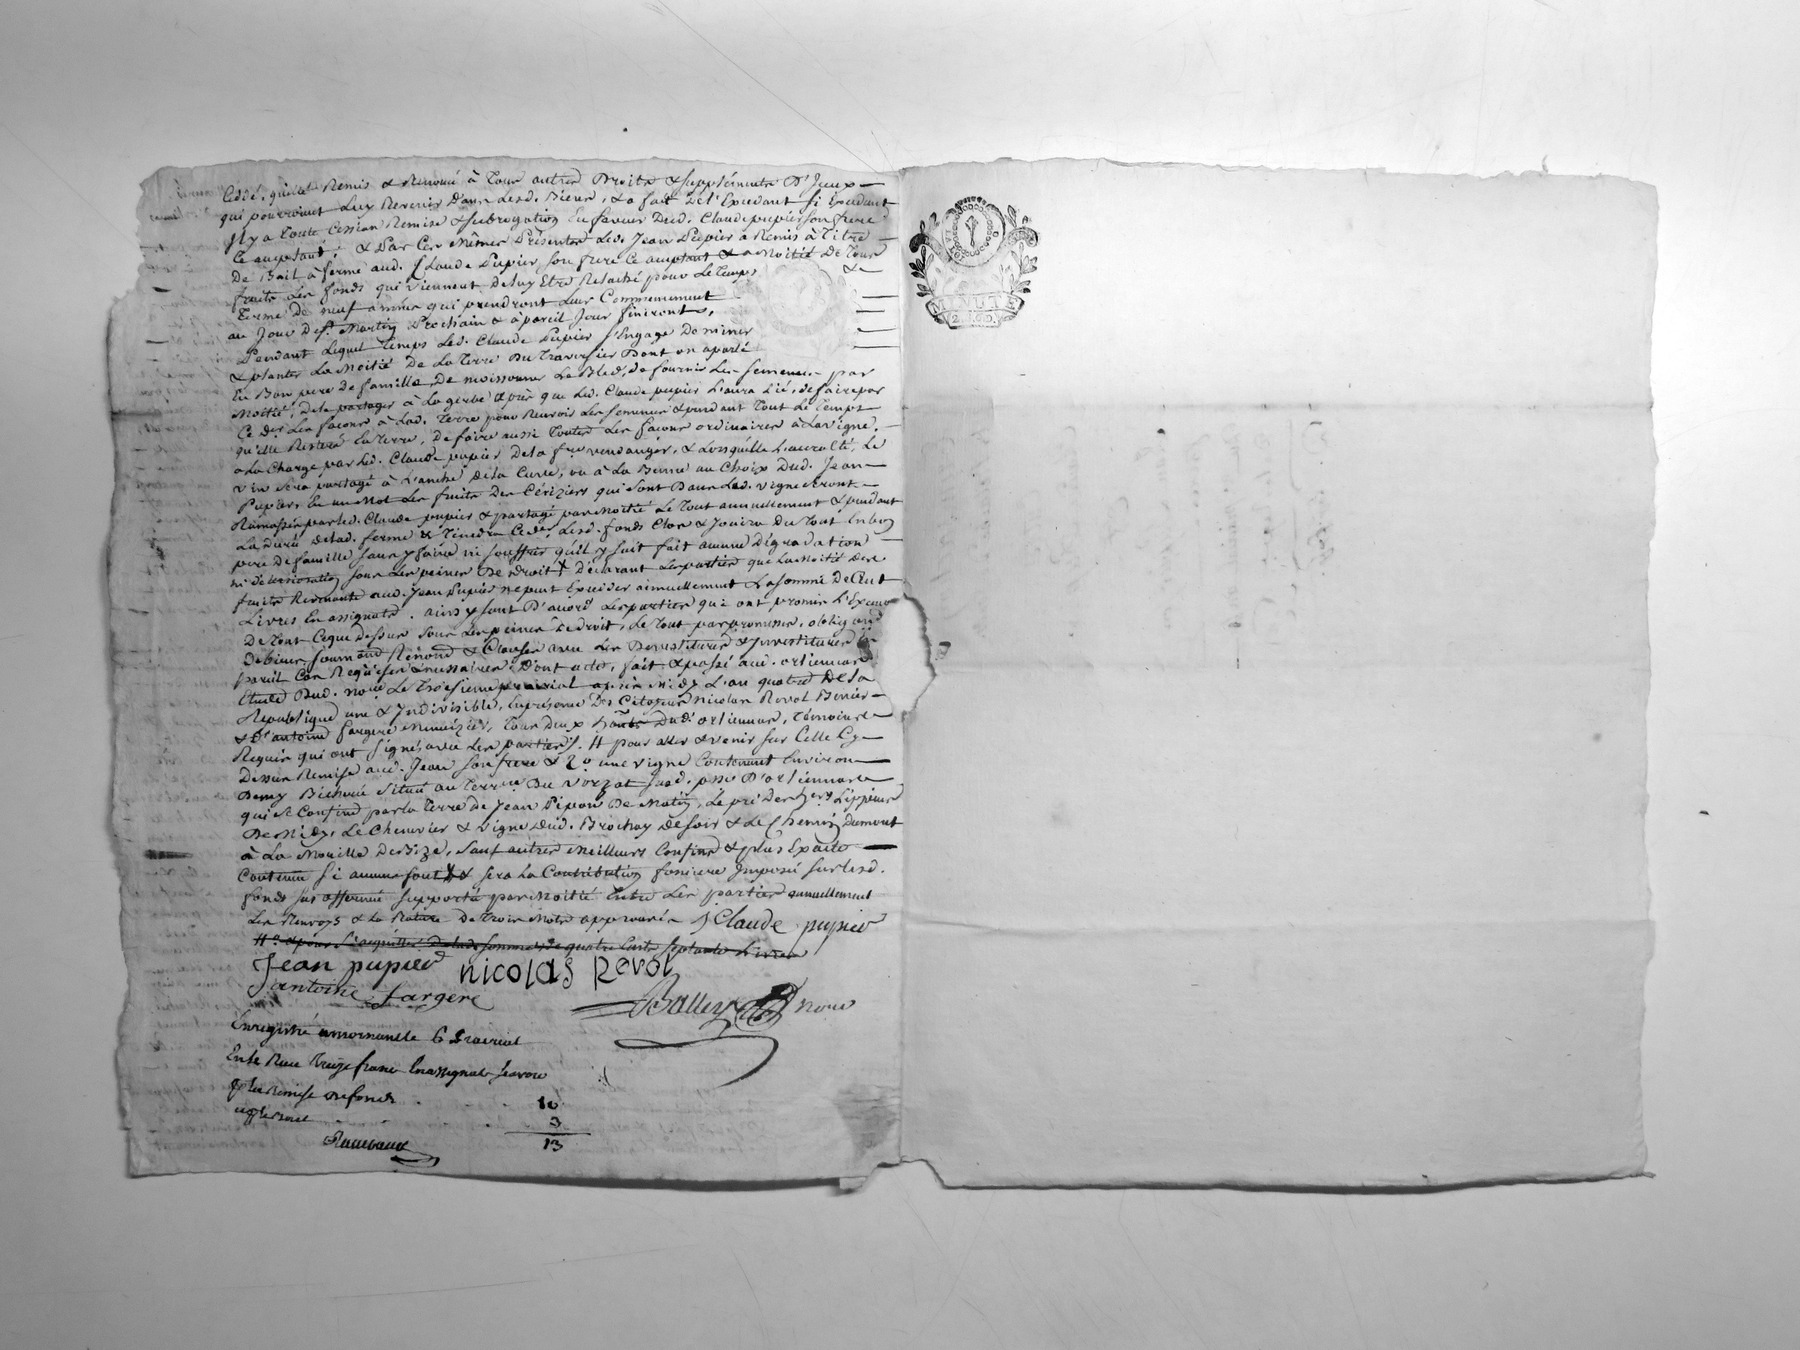 Cédé, quitté Remis & Renoncé à tous autres Droits & suppléments D'Iceux
qui pourroient Luy Revenir Dans Lesd. Biens, & a fait De l'Excedant si Excedant
Il y a toute Cession Remise & subrogation En faveur Dud. Claude pupier son frere
Ce acceptant, & Par Ces Mêmes Présentes Led. Jean Pupier a Remis à Titre
De Bail à ferme aud. Claude Pupier son frere Ce acceptant & a Moitié De Tous
fruits Les fonds qui Viennent De luy Etre Relaché pour Le Temps &
Terme De neuf années qui prendront Leur Commencement
au Jour De St. Martin Prochain & à pareil Jour finiront,
Pendant Lequel Temps Led. Claude Pupier s'Engage De miner
& planter La Moitié De La Terre Du Traversier Dont on a parlé
En Bon pere De famille, De moissonner Le Bled, de fournir Les semences par
Moitié, De le partager à La gerbe après que Led. Claude pupier L'aura Lié, de faire par
Ce Der Les façons à Lad. Terre pour Recevoir Les semences & pendant Tout Le Temps
qu'elle Restera En Terre, De faire aussi Toutes Les façons ordinaires à La Vigne,
a La Charge par Led. Claude pupier De la fre vendanger, & Lorsqu'elle Le
Vin sera partagé à L'anche De la Cuve, ou à La Benne au Choix Dud. Jean
Pupier, En un Mot Les fruits Des Cériziers qui sont Dans Lad. vigne seront
Ramassés par Led. Claude pupier & partagé par Moitié Le Tout annuellement & pendant
La Durée De lad. ferme & Tiendra Ce Der Lesd. fonds Clos & Jouira Du Tout En bon
pere De famille sans y faire ni souffrir qu'il y soit fait aucune Dégradation
ni Détérioration sous Les peines De Droit, Déclarant Les parties que La Moitié Des
fruits Revenants aud. Jean Pupier ne peut Exceder annuellement La somme De Cent
Livres En assignats. ainsy sont D'accord Les parties qui ont promis L'Execution
De Tout Ce que Dessus sous Les peines De Droit, Le Tout par promesse, obligaon
De biens, soumons Renons & Clauses avec Les Devestitures & Investitures En
pareil Cas Requises & necessaires Dont acte, fait & passé aud. ortiennard
Etude Dud. noe Le Troisieme prairial après Midy L'an quatre De la
République une & Indivisible, En presence Des Citoyens Nicolas Revol
& D'antoine fargere Menuizier, Tous Deux Dud. ortiennard, Temoins
Requis qui ont signé, avec Les parties. # pour aller & venir sur Celle Cy
Dessus Remise aud. Jean son frere & 2o une vigne Contenant Environ
Demy Bichenée située au Terroir Du Vorzat sud. psse D'ortiennard
qui se Confine par la Terre de Jean Pipon De Matin, Le pré Des hers
De Midy, Le Chenevier & Vigne Dud. Brochay De soir & Le Chemin
à La Mouille De Bize, sauf autres Meilleurs Confins & plus Exacte
Contenue si aucuns sont & sera La Contribution fonciere Imposée sur Lesd.
fonds sus affermés supportée par Moitié Entre Les parties annuellement
Les Renvoys & La Rature De Trois Mots approuvés Claude pupier
Jean pupier nicolas Revol
antoine fargere
Balley noe
Enregistré a 6 Prairial
4e Reçu treize francs En assignats savoir
Pr la Remise De fonds 10
3
13